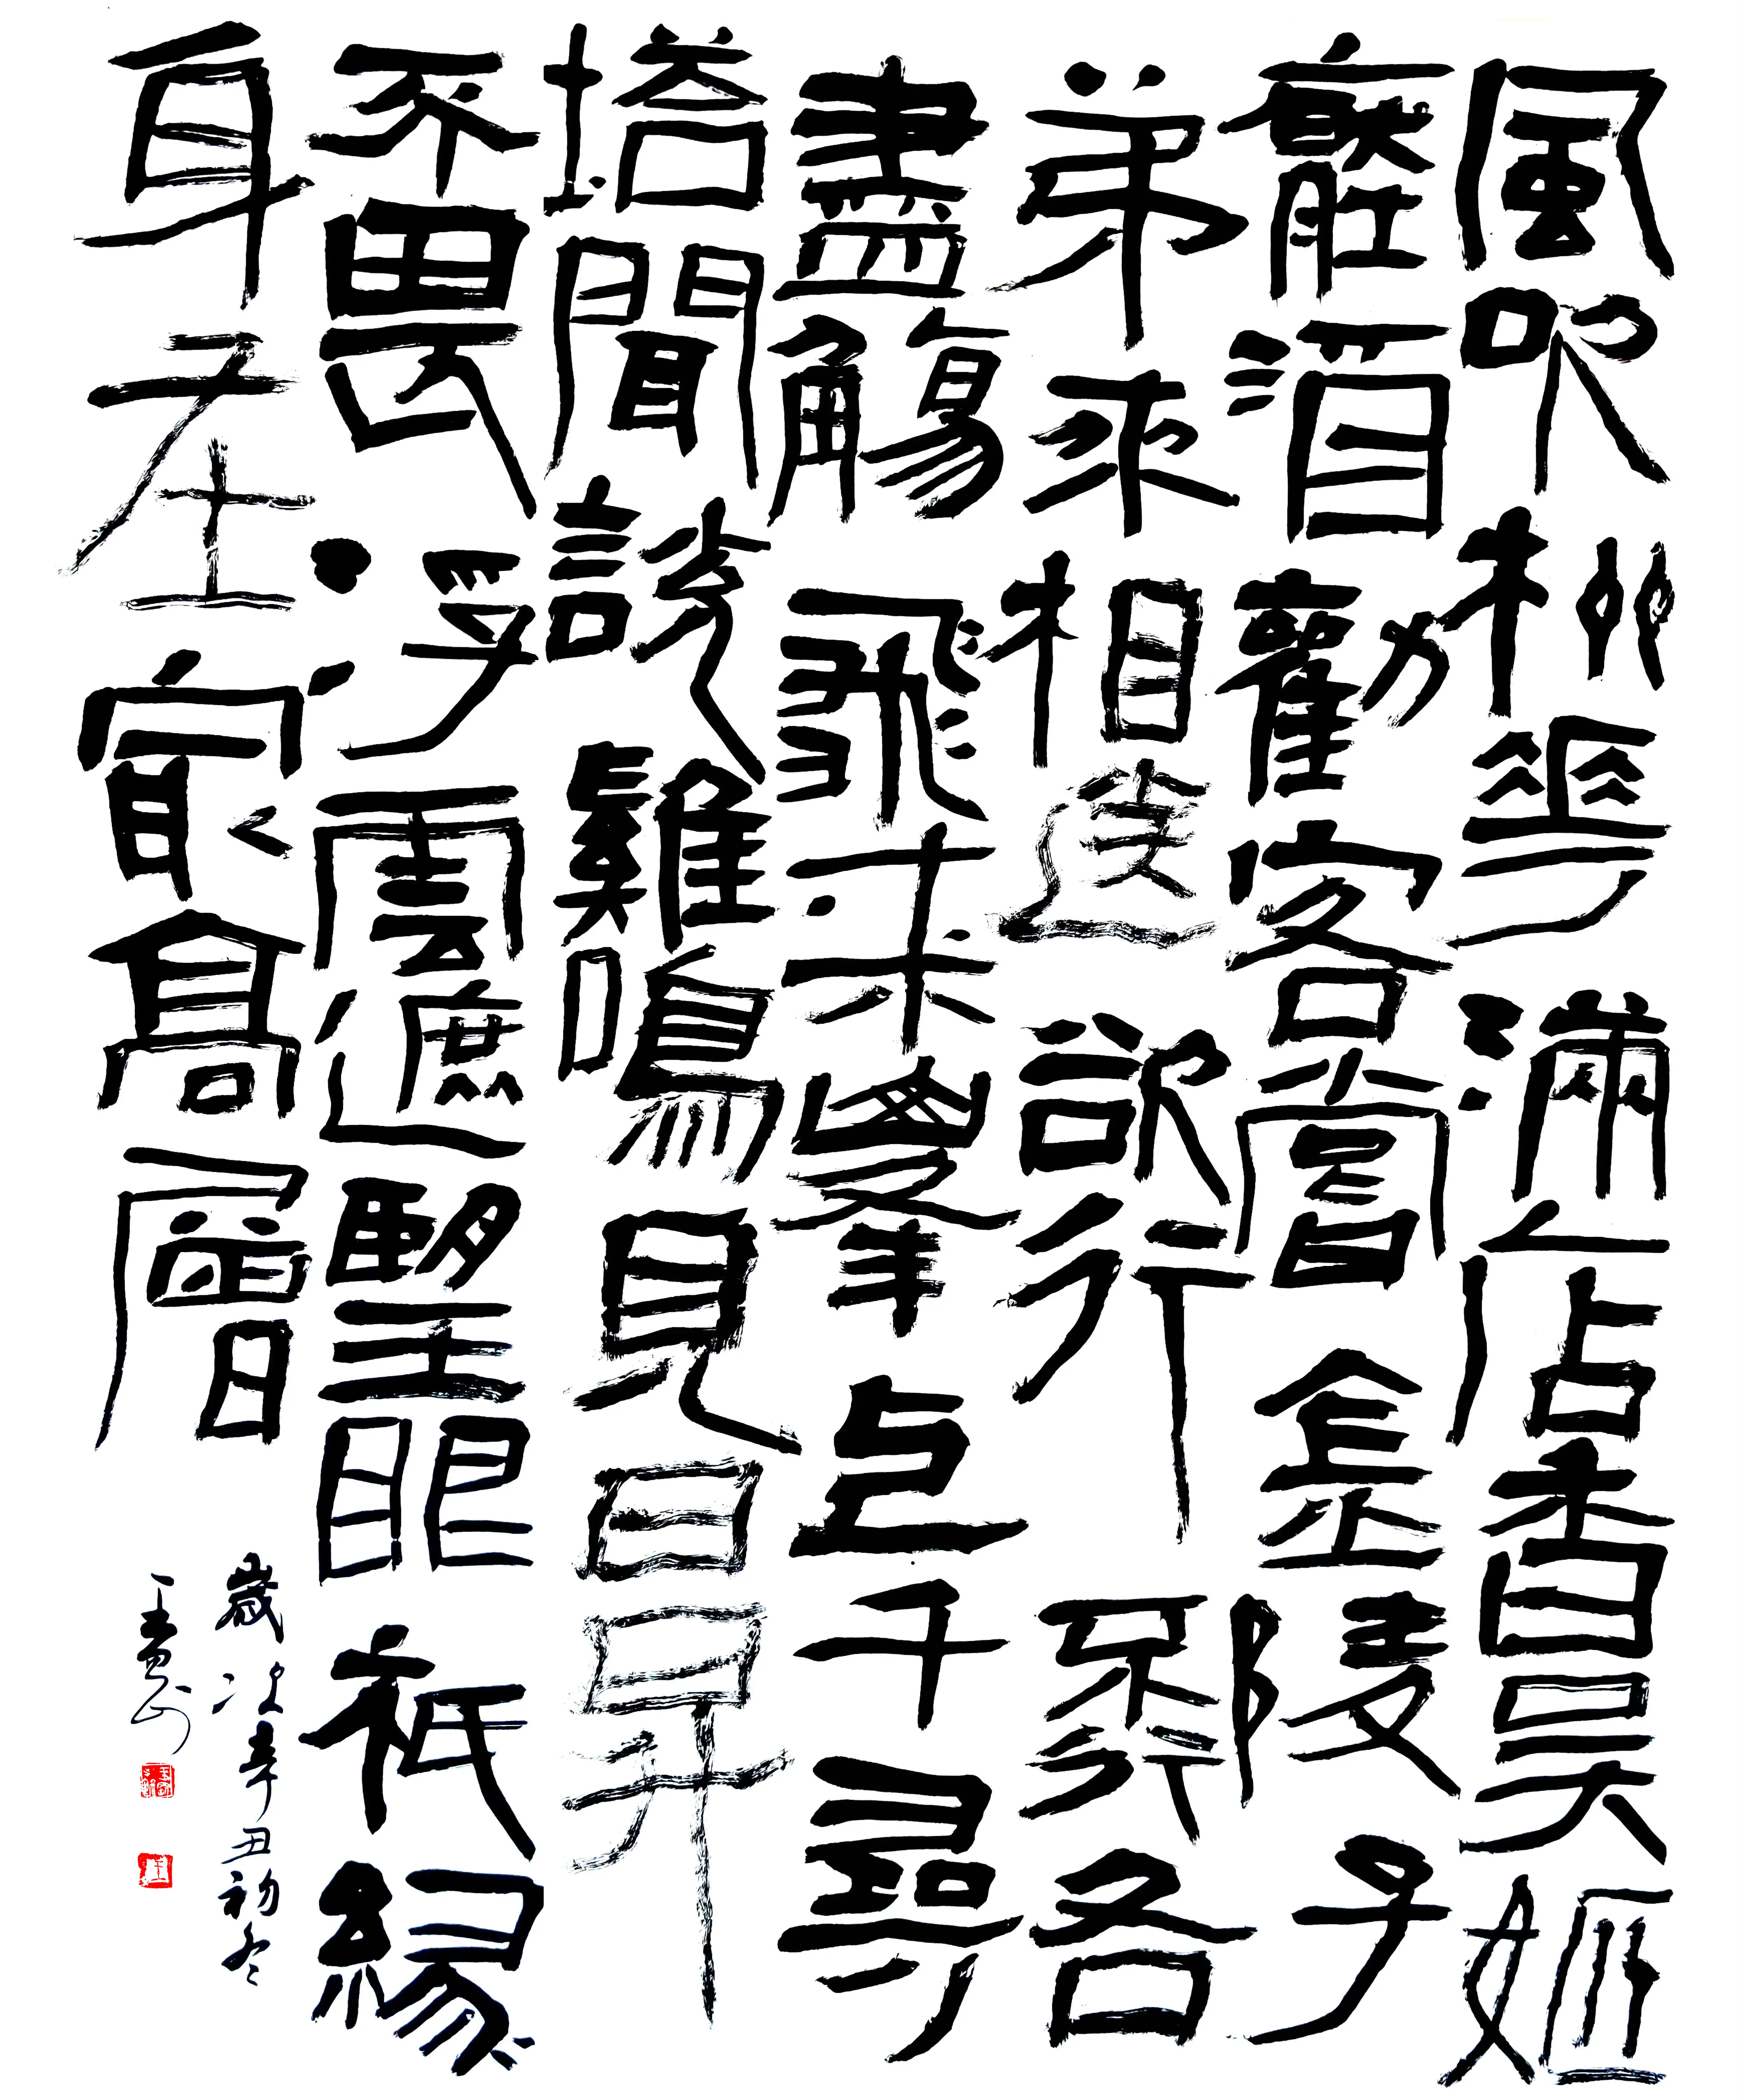 風吹柳花滿店香吳姬
壓酒勸客嘗金陵子
弟來相送欲行不行各
盡觴飛來峯上千尋
塔聞說雞鳴見日昇
不畏浮雲遮望眼祇緣
身在最高層
歲次辛丑初冬
王